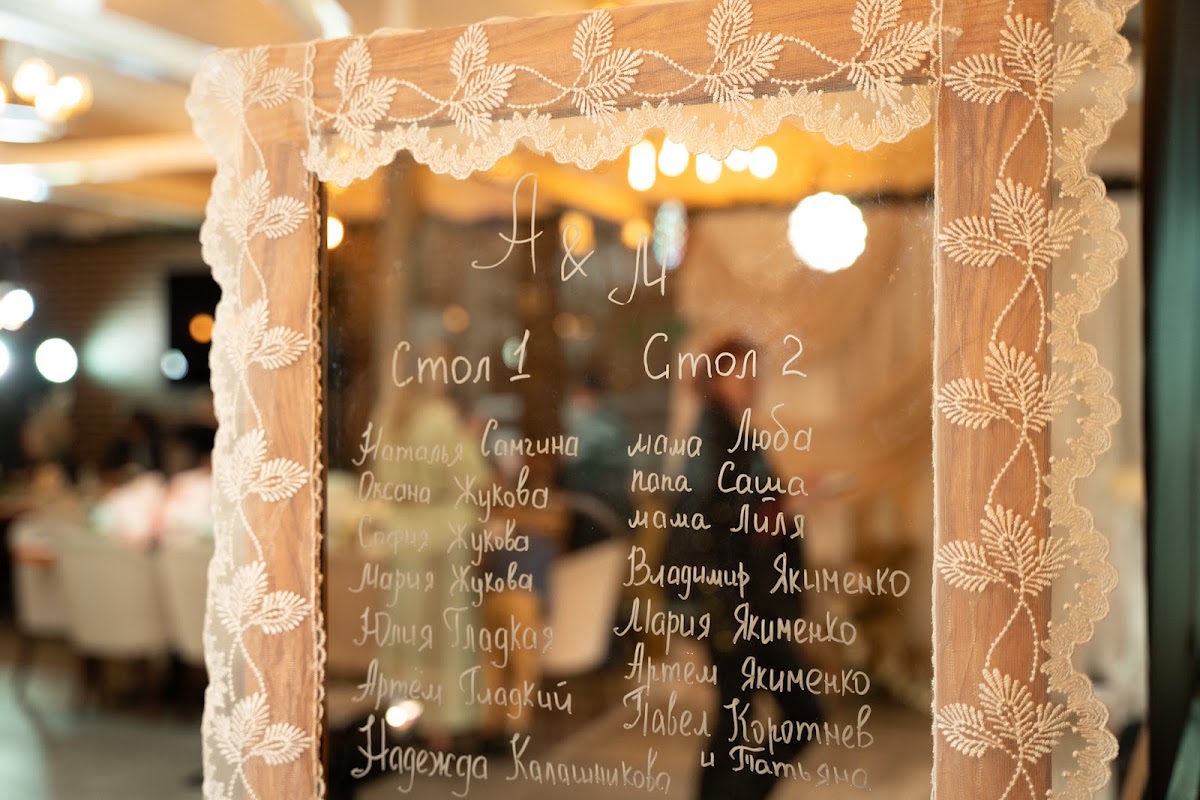 А & М
Стол 1
Наталья Самгина
Оксана Жукова
София Жукова
Мария Жукова
Юлия Гладкая
Артём Гладкий
Надежда Калашникова
Стол 2
мама Люба
папа Саша
мама Лиля
Владимир Якименко
Мария Якименко
Артём Якименко
Павел Коротнев
и Татьяна